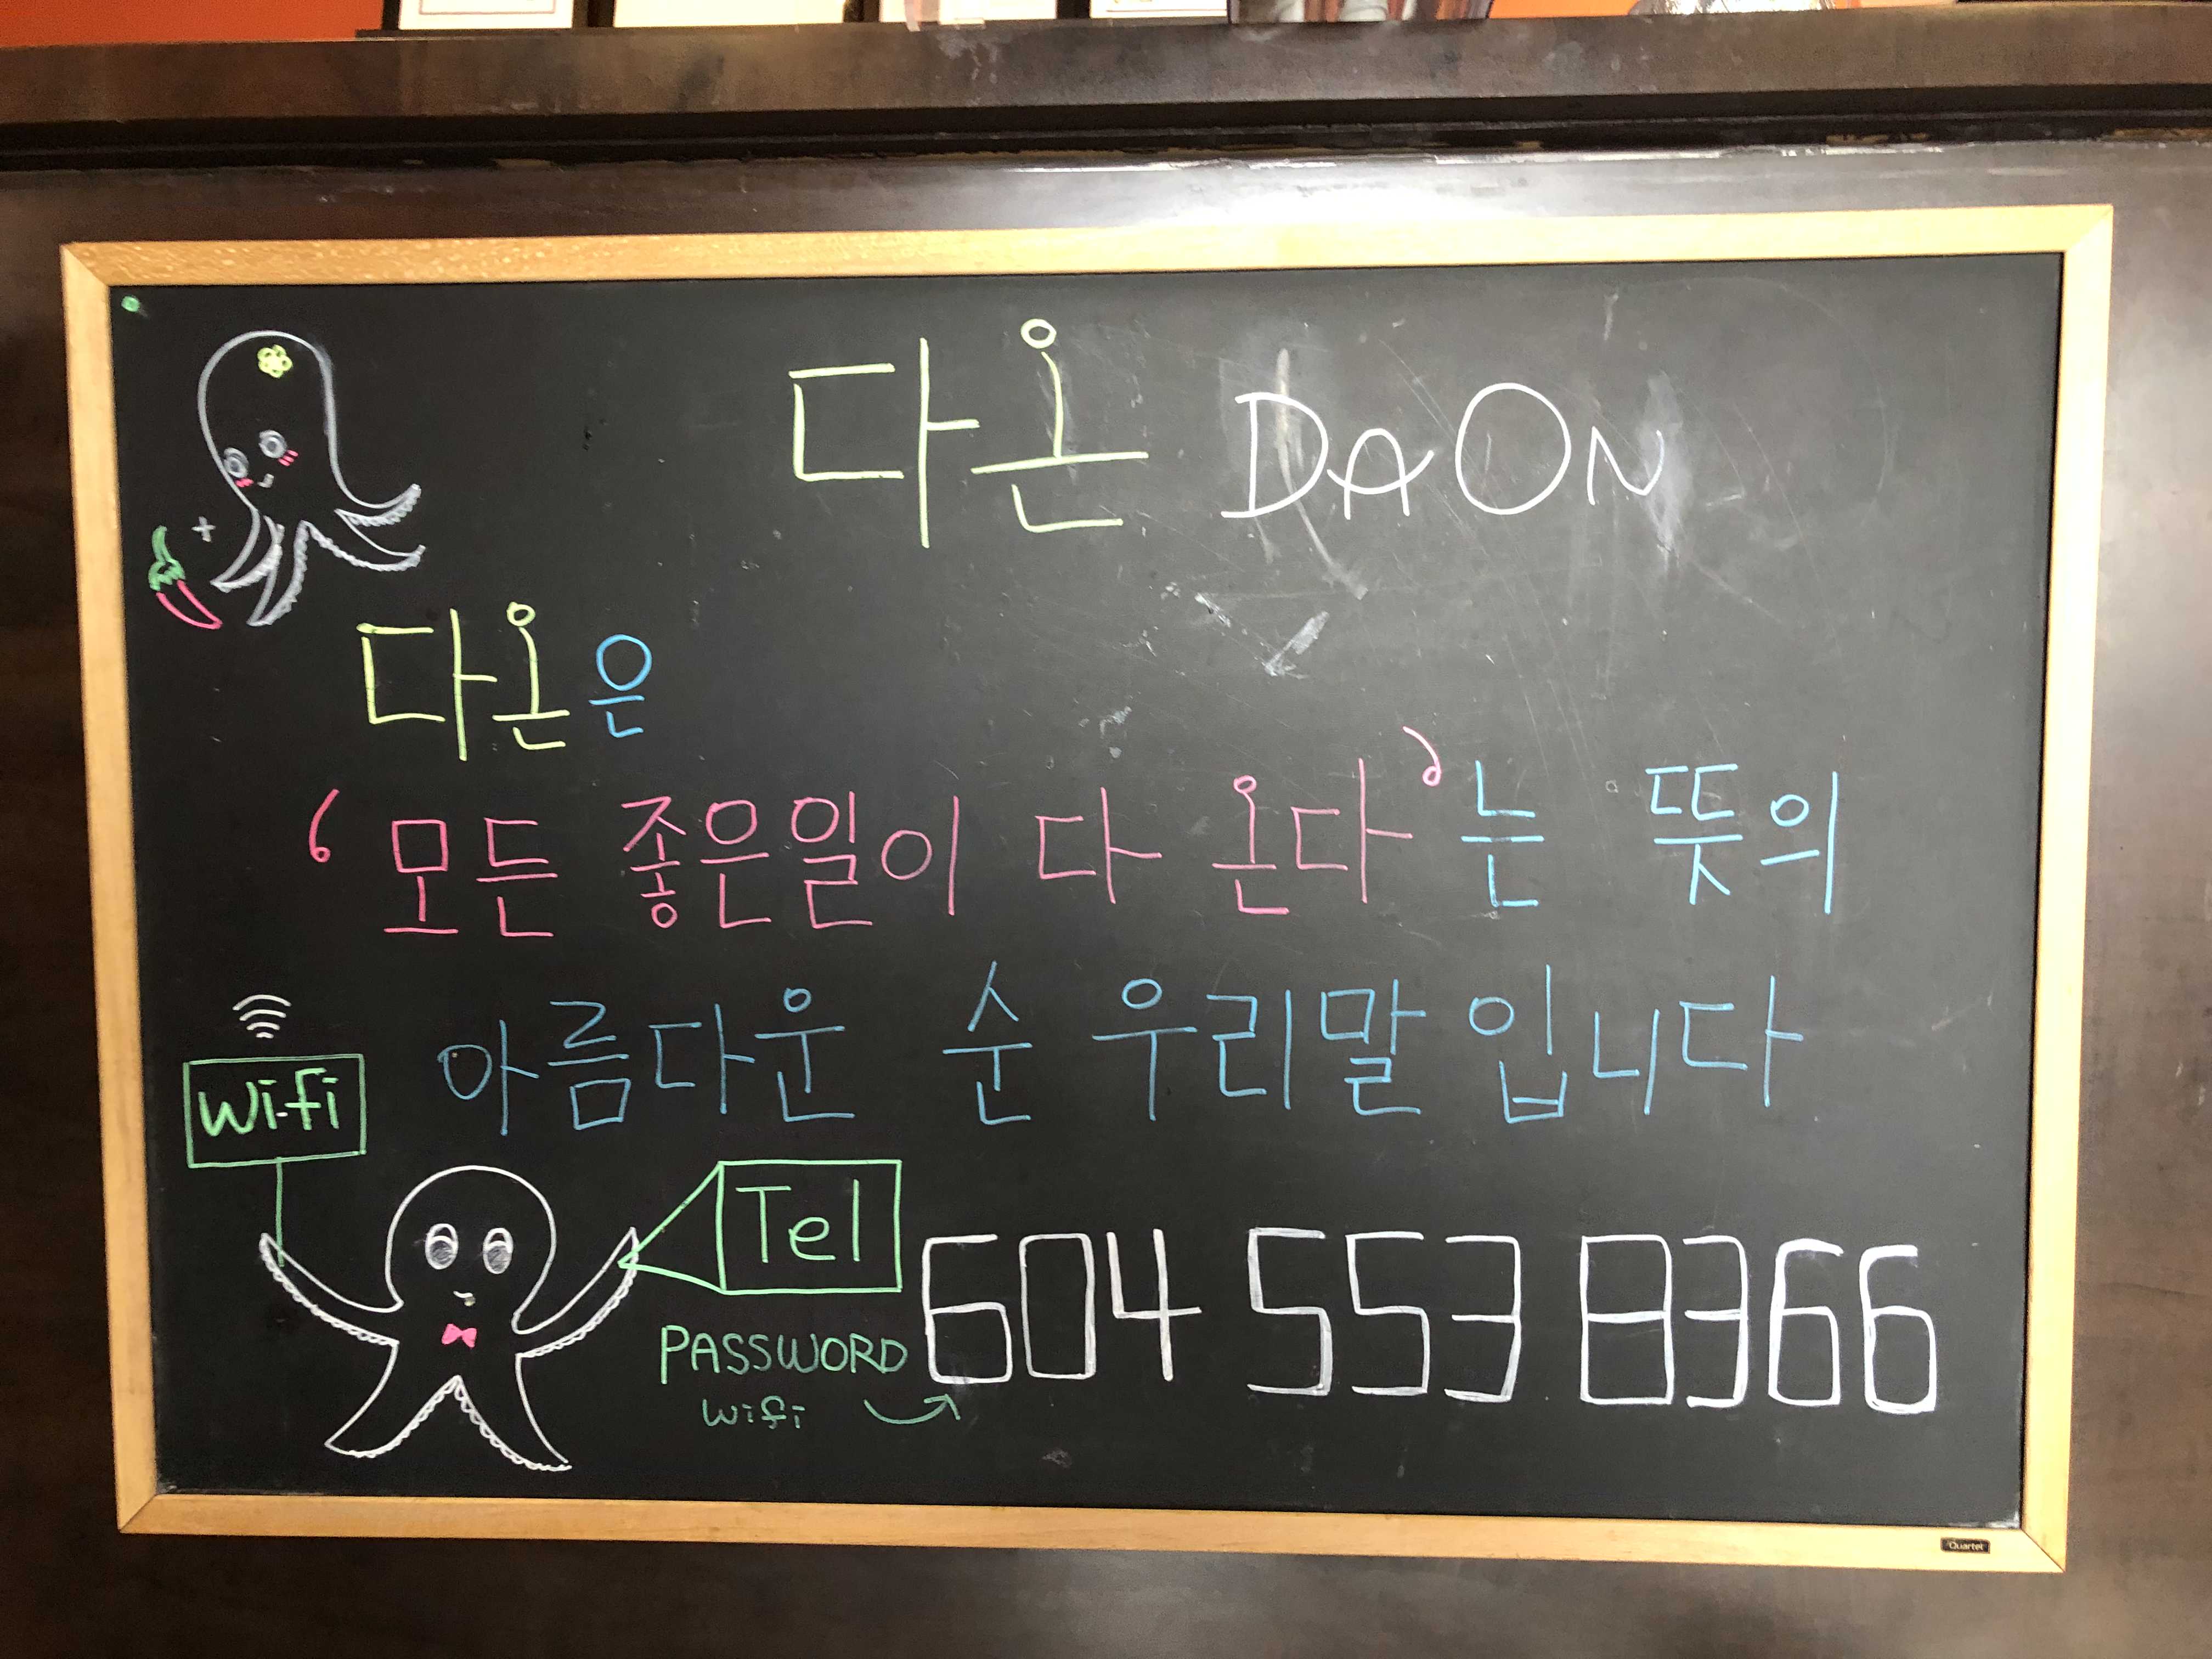 다온 DAON
다온은
‘모든 좋은일이 다 온다’는 뜻의
아름다운 순 우리말입니다
Wi-fi
Tel 604 553 8366
PASSWORD
wifi
Quartet